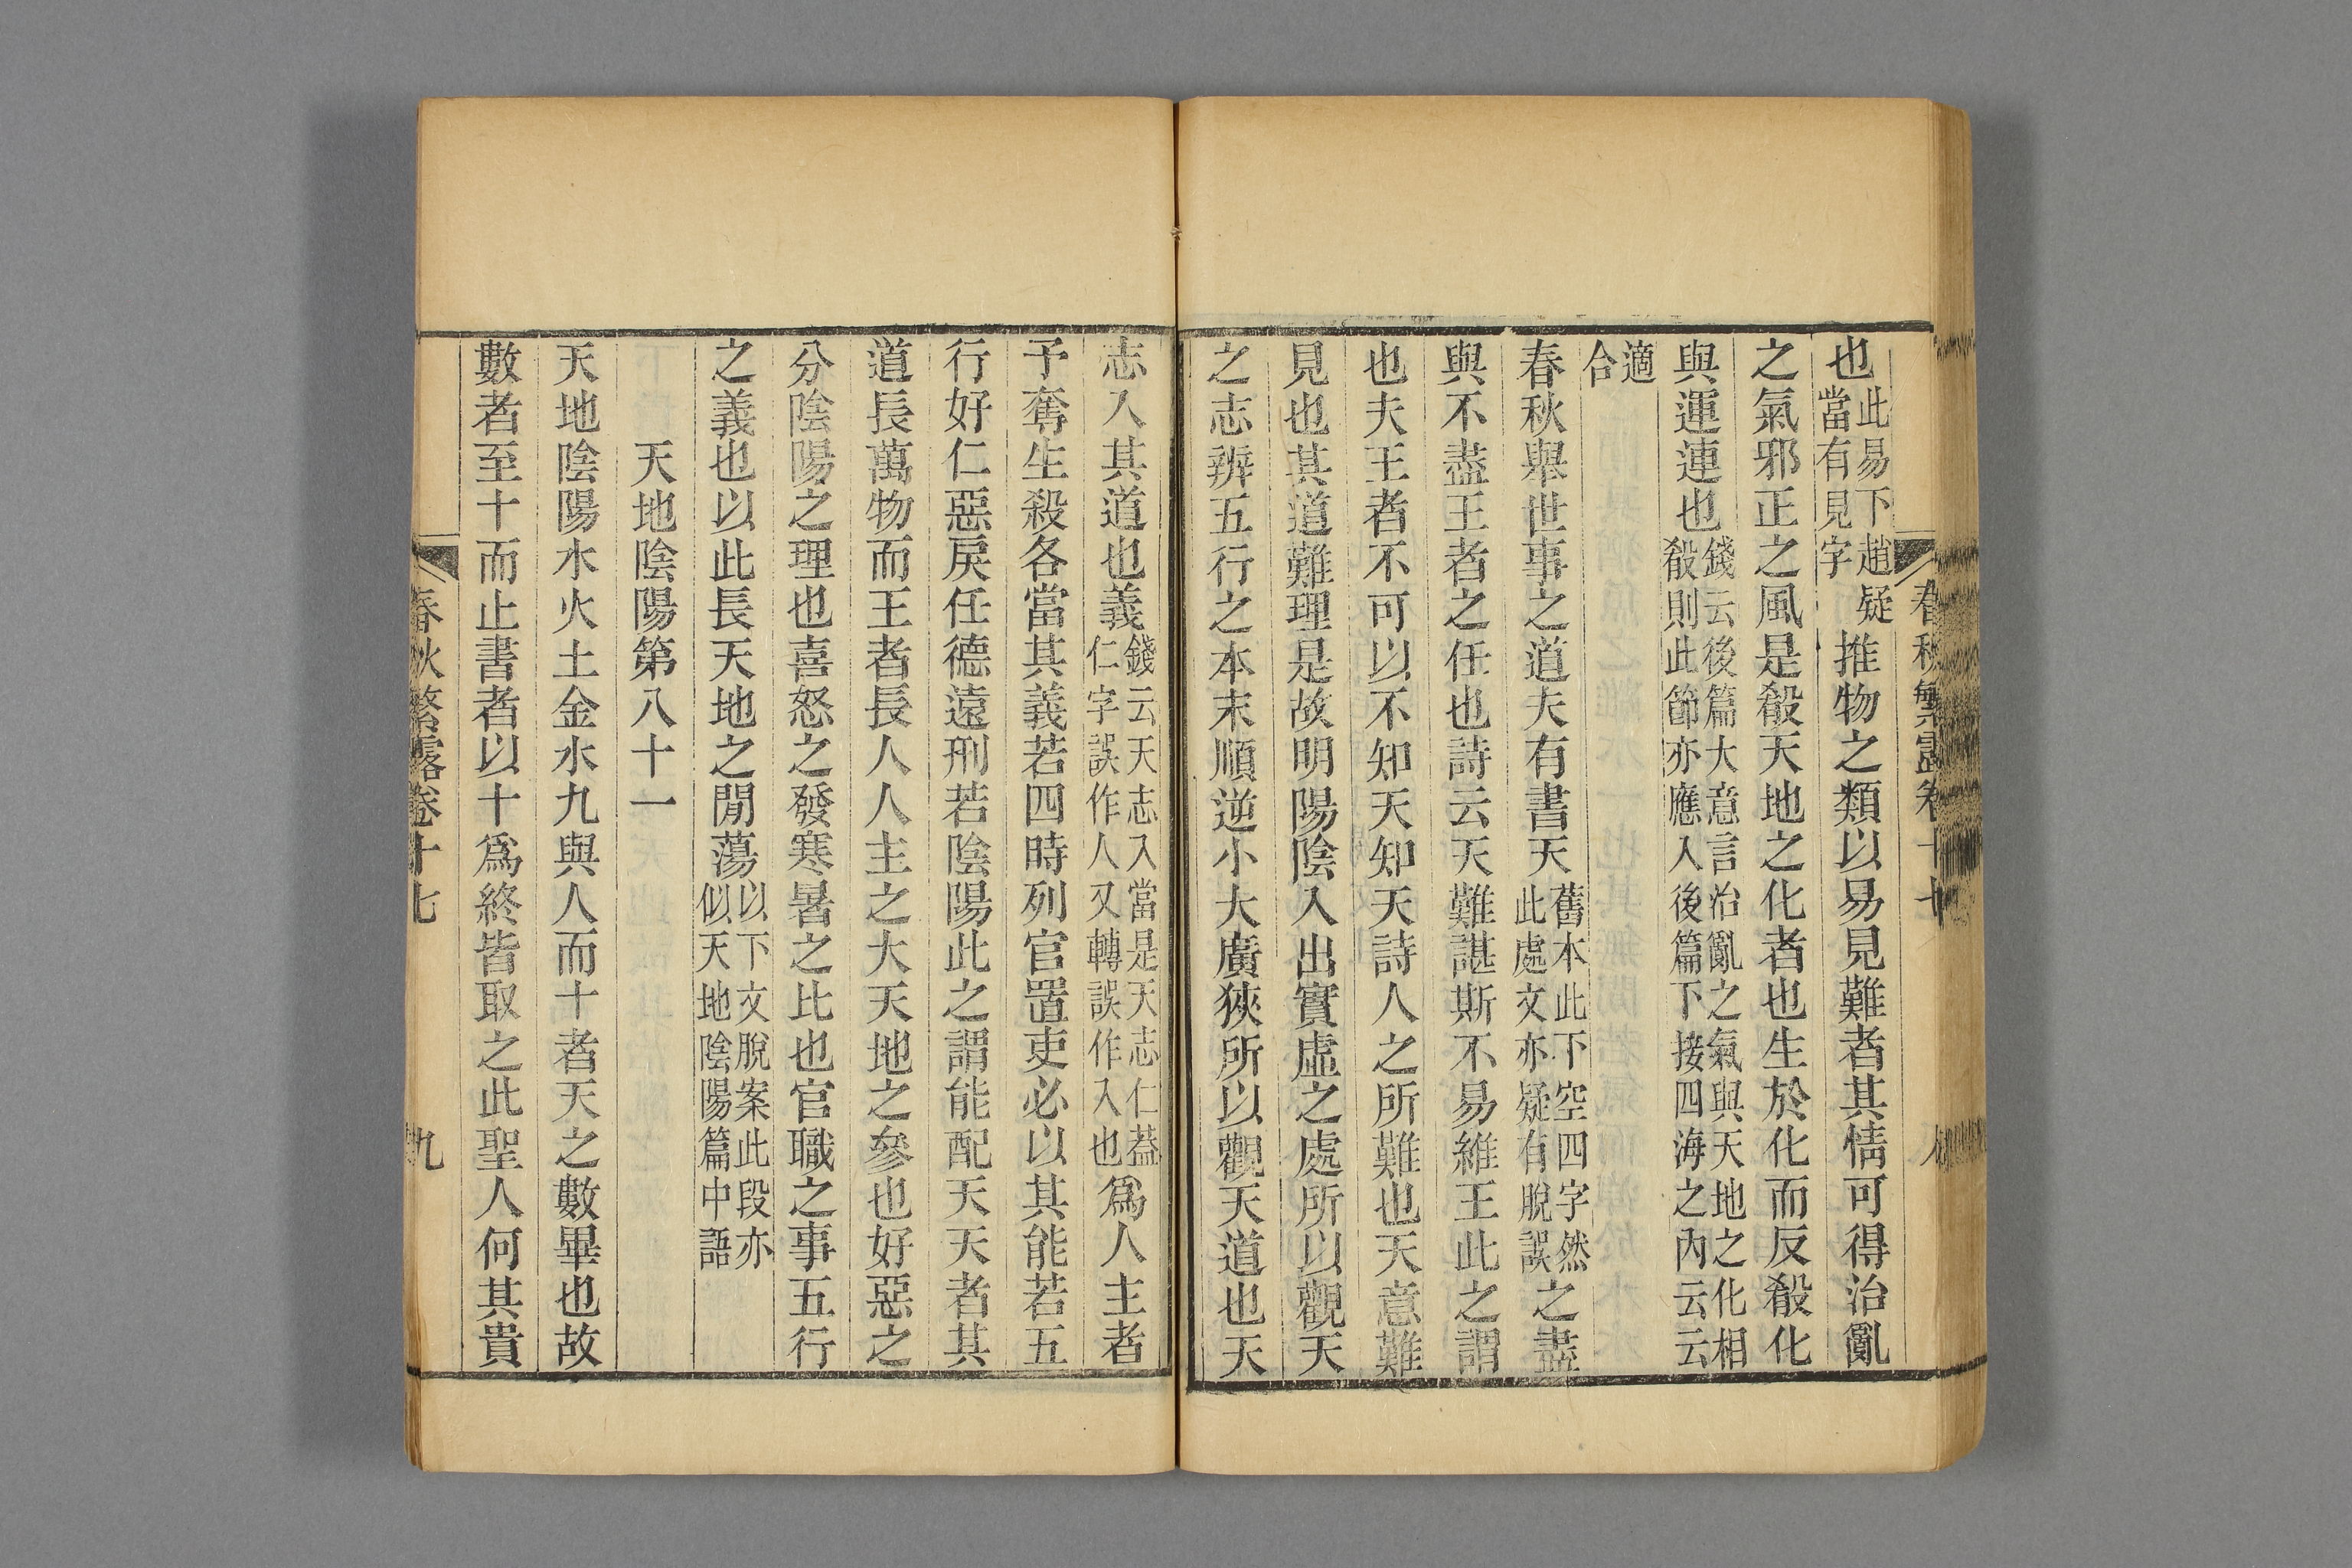 春秋繁露卷十七
也此易下趙疑當有見字推物之類以易見難者其情可得治亂
之氣邪正之風是殽天地之化者也生於化而反殽化
與運連也錢云後篇大意言治亂之氣與天地之化相殽則此節亦應入後篇下接四海之內云云
適合
春秋舉世事之道夫有書天舊本此下空四字然此處文亦疑有脫誤之盡
與不盡王者之任也詩云天難諶斯不易維王此之謂
也夫王者不可以不知天知天詩人之所難也天意難
見也其道難理是故明陽陰入出實虛之處所以觀天
之志辨五行之本末順逆小大廣狹所以觀天道也天
志入其道也義錢云天志入當是天志仁葢仁字誤作人又轉誤作入也爲人主者
予奪生殺各當其義若四時列官置吏必以其能若五
行好仁惡戾任德遠刑若陰陽此之謂能配天天者其
道長萬物而王者長人人主之大天地之參也好惡之
分陰陽之理也喜怒之發寒暑之比也官職之事五行
之義也以此長天地之閒蕩以下文脫案此段亦似天地陰陽篇中語
天地陰陽第八十一
天地陰陽水火土金水九與人而十者天之數畢也故
數者至十而止書者以十爲終皆取之此聖人何其貴
春秋繁露卷十七
九